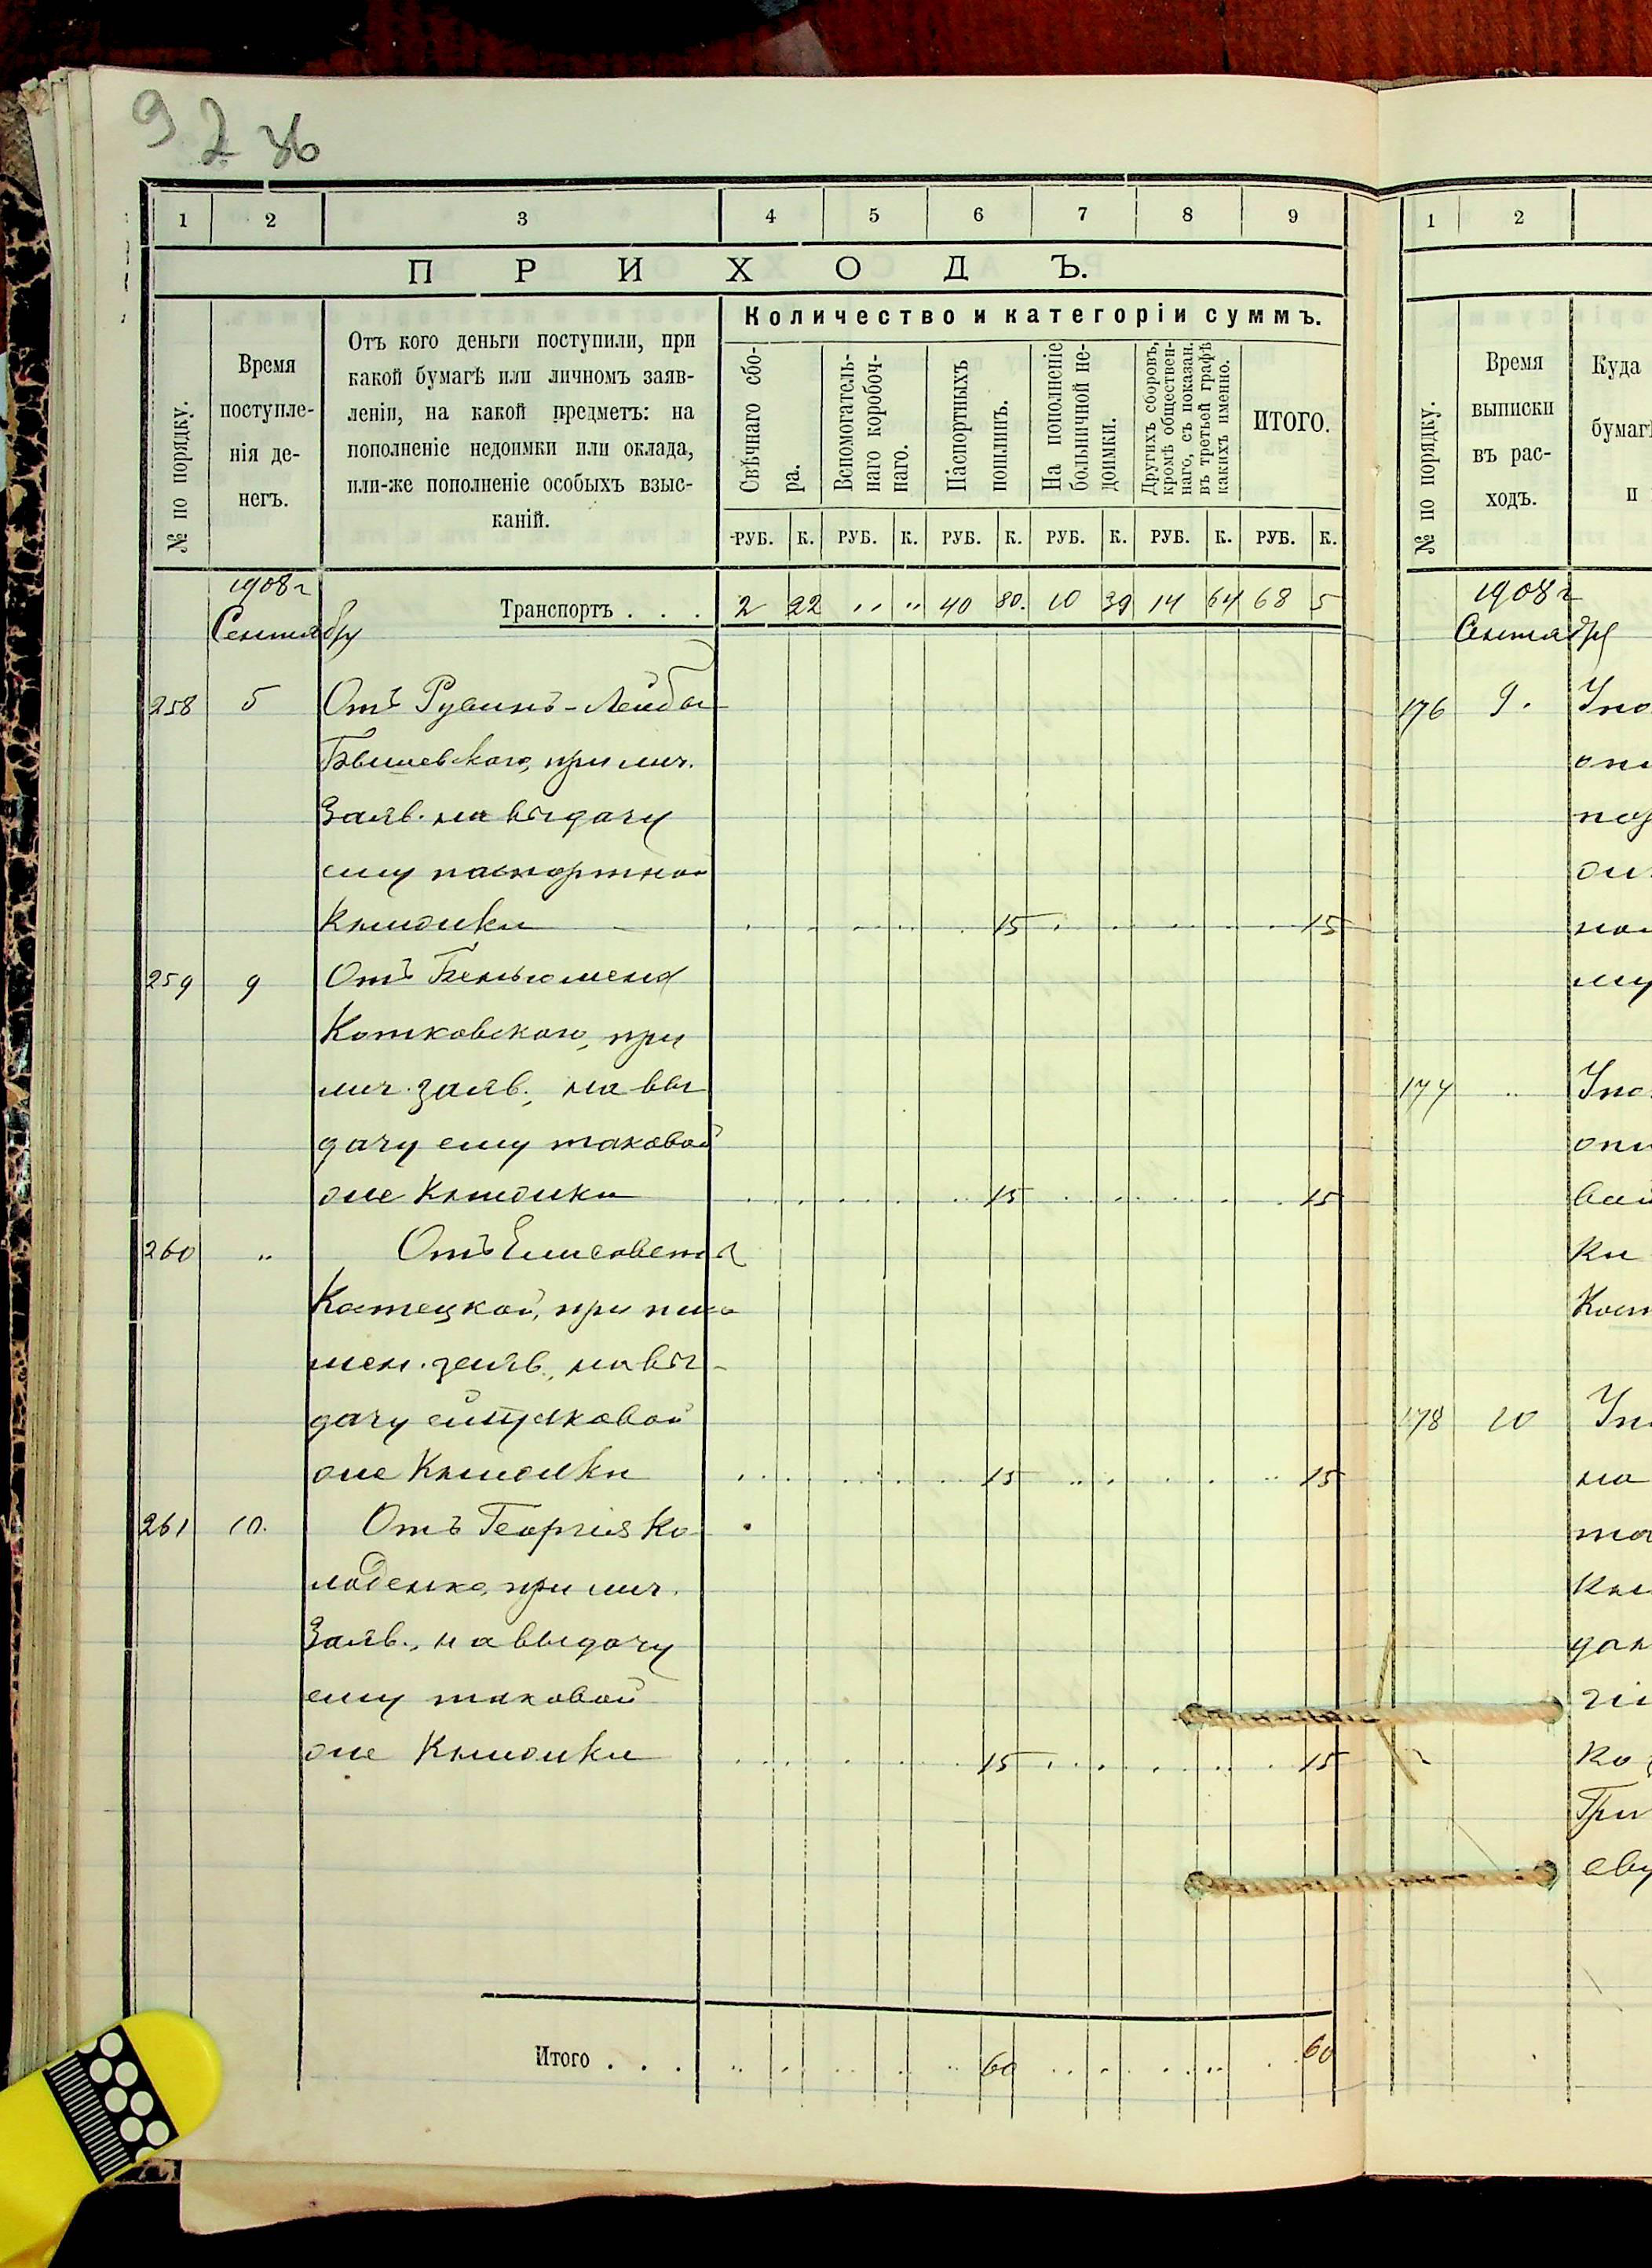 9 2 об
1 2 3 4 5 6 7 8 9
ПРИХОДЪ.
№ по порядку.
Время
поступле-
нія де-
негъ.
Отъ кого деньги поступили, при
какой бумагѣ или личномъ заяв-
леніи, на какой предметъ: на
пополненіе недоимки или оклада,
или-же пополненіе особыхъ взыс-
каній.
Количество и категоріи суммъ.
Свѣчнаго сбо-
ра.
Вспомогатель-
наго коробоч-
наго.
Паспортныхъ
пошлинъ.
На пополненіе
больничной не-
доимки.
Другихъ сборовъ,
кромѣ обществен-
наго, съ показан.
въ третьей графѣ
какихъ именно.
ИТОГО.
РУБ. К. РУБ. К. РУБ. К. РУБ. К. РУБ. К. РУБ. К.
1908 г
Сентября
Транспортъ . . . 2 22 " " 40 80. 10 39 14 64 68 5
258 5 Отъ Рувинъ-Лейбы
при лич.
Заяв. на выдачу
ему паспортной
книжки 15 15
259 9 Отъ Беньюмена
Котковского, при
лич. заяв., на вы
дачу ему таковой
же книжки 15 15
260 " Отъ Елисавета
Катецкой, при пись
мен. заяв., на вы-
дачу ей таковой
же книжки 15 15
261 10. Отъ Георгія Ко
лоденко, при лич.
Заяв., на выдачу
ему таковой
же книжки 15 15
Итого . . . 60 60
1 2
№ по порядку.
Время
выписки
въ рас-
ходъ.
Куда
бумаг
п
1908 г
Сентября
176 9.
177 "
178 10
на
Ко
Гри
еву